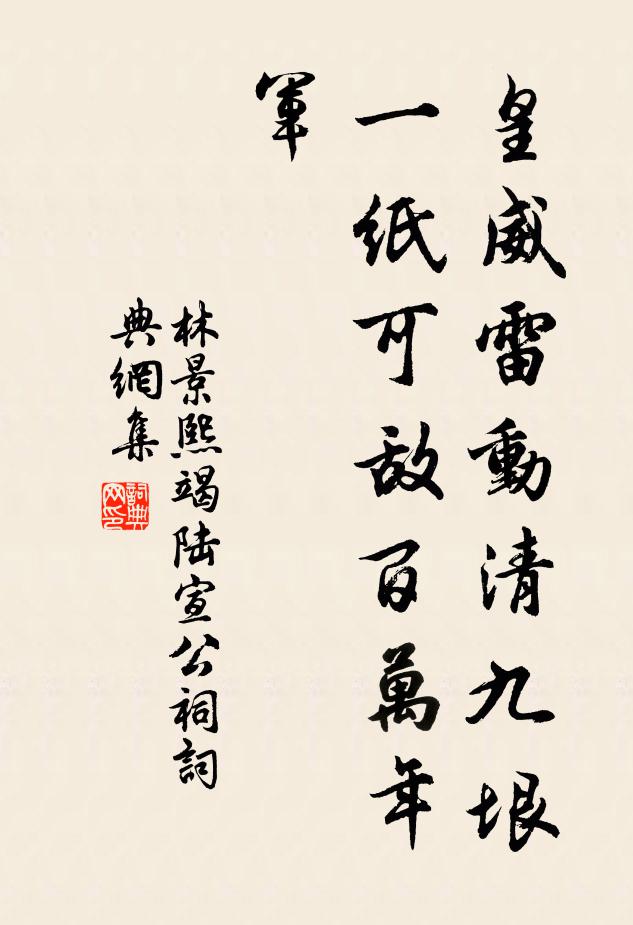 皇威雷動清九垠
一紙可敵百萬年
軍
林景熙竭陸宣公祠詞
典網集
詞典
网印